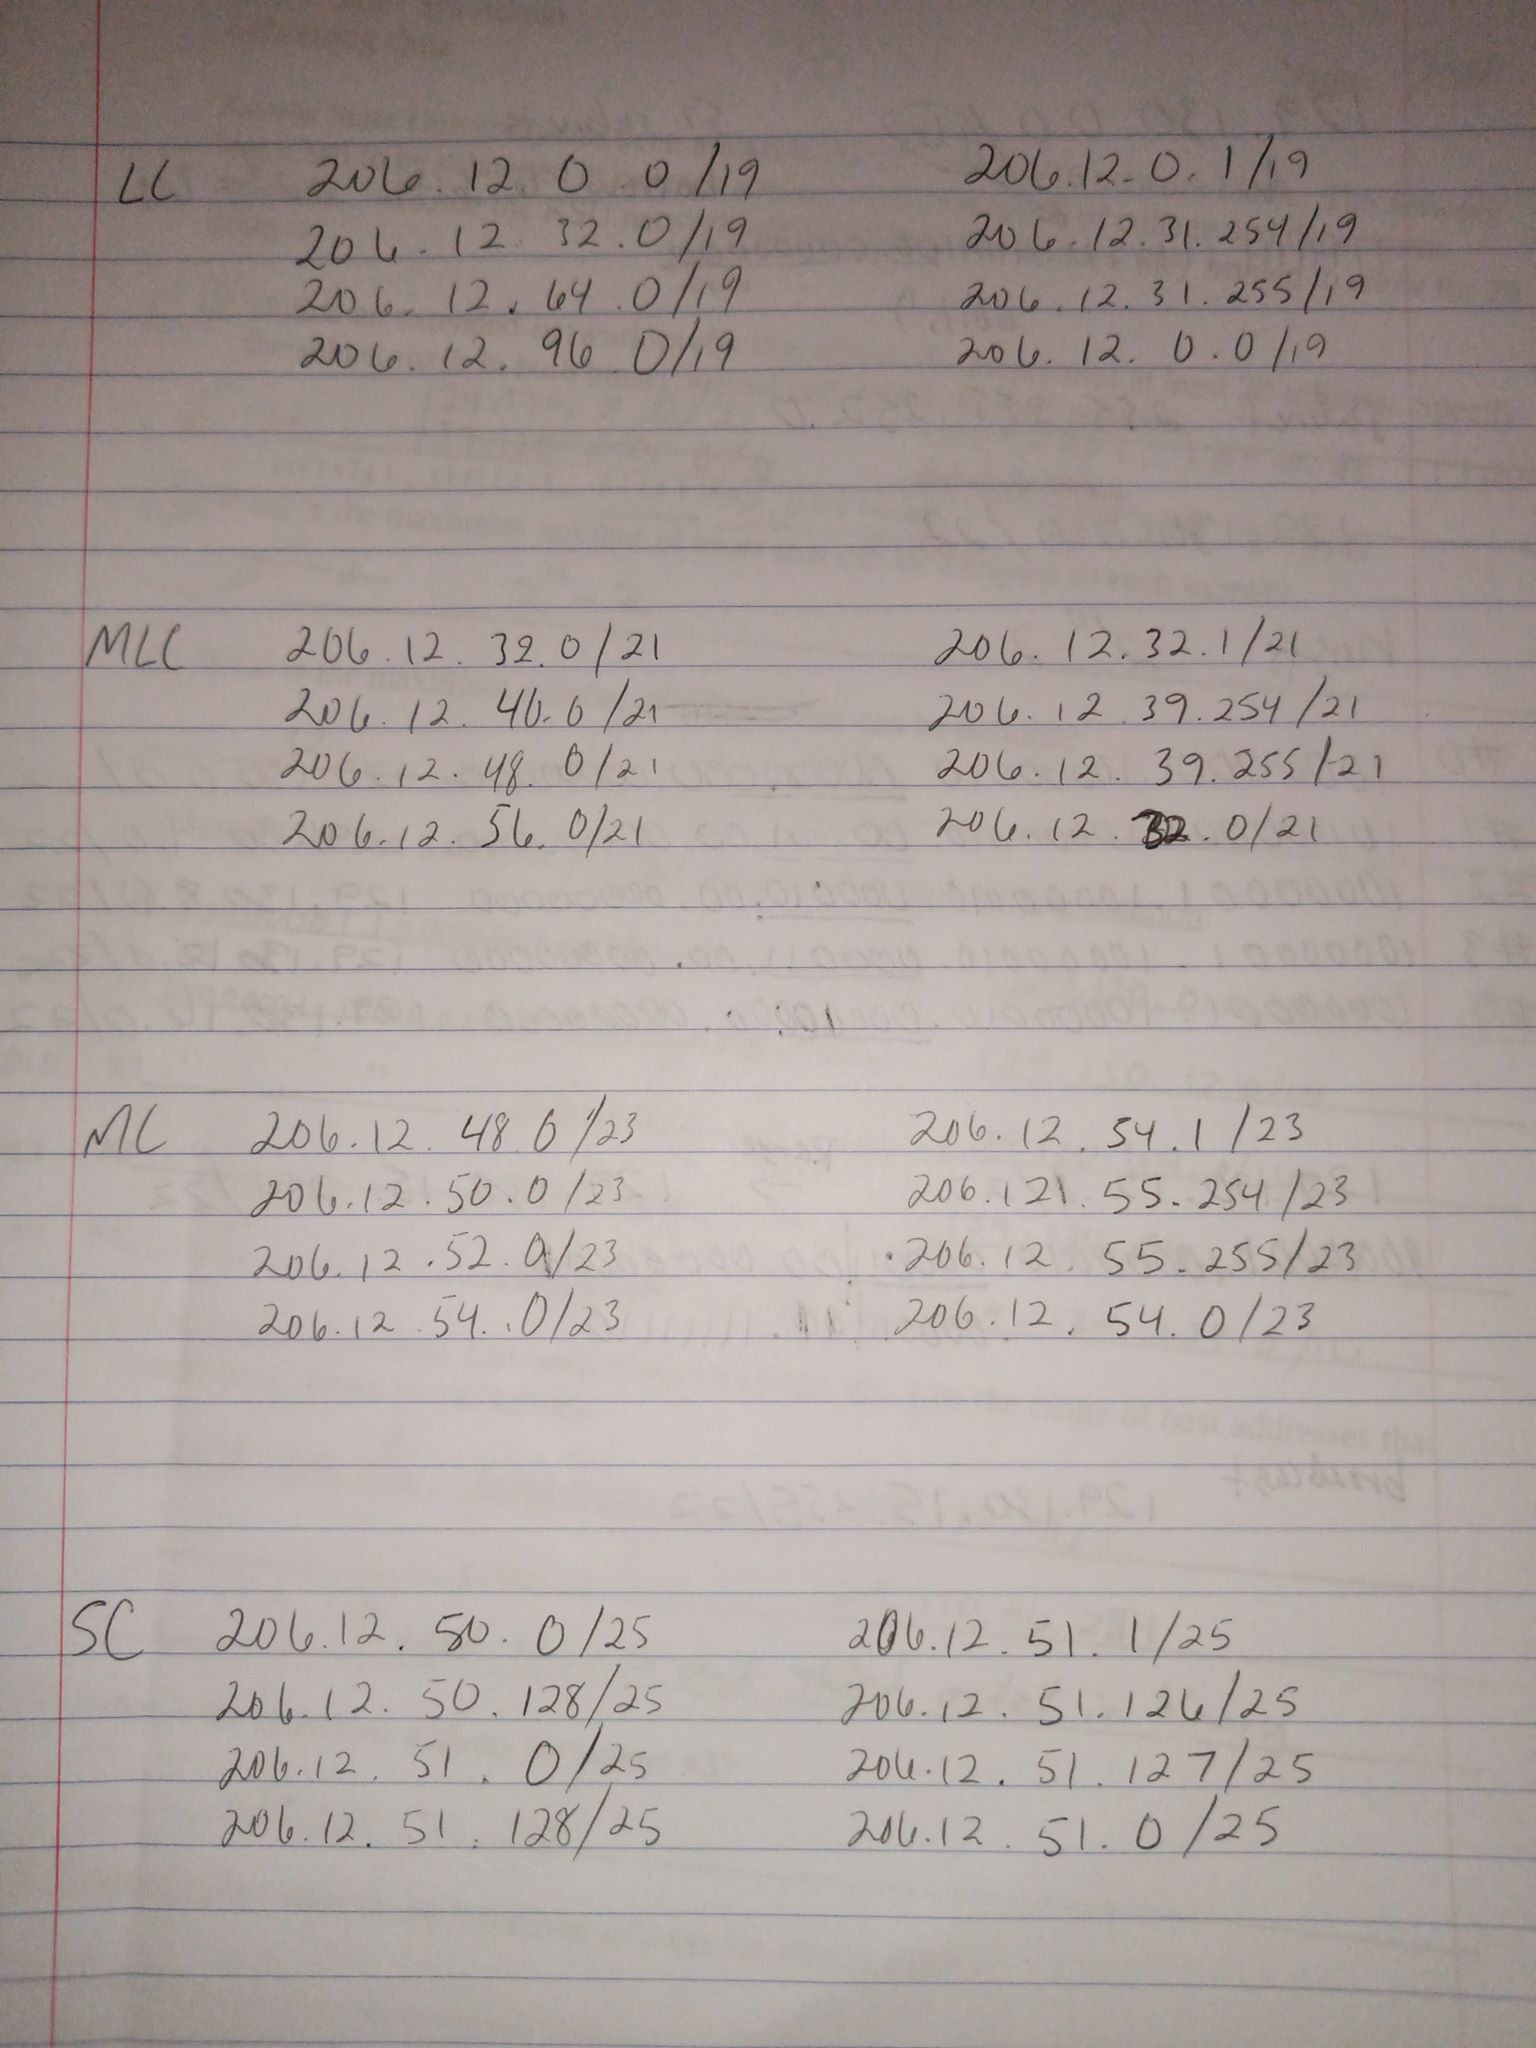 LC 206.12.0.0/19 206.12.0.1/19
206.12.32.0/19 206.12.31.254/19
206.12.64.0/19 206.12.31.255/19
206.12.96.0/19 206.12.0.0/19
MLC 206.12.32.0/21 206.12.32.1/21
206.12.40.0/21 206.12.39.254/21
206.12.48.0/21 206.12.39.255/21
206.12.56.0/21 206.12.32.0/21
MC 206.12.48.0/23 206.12.54.1/23
206.12.50.0/23 206.121.55.254/23
206.12.52.0/23 206.12.55.255/23
206.12.54.0/23 206.12.54.0/23
SC 206.12.50.0/25 206.12.51.1/25
206.12.50.128/25 206.12.51.126/25
206.12.51.0/25 206.12.51.127/25
206.12.51.128/25 206.12.51.0/25